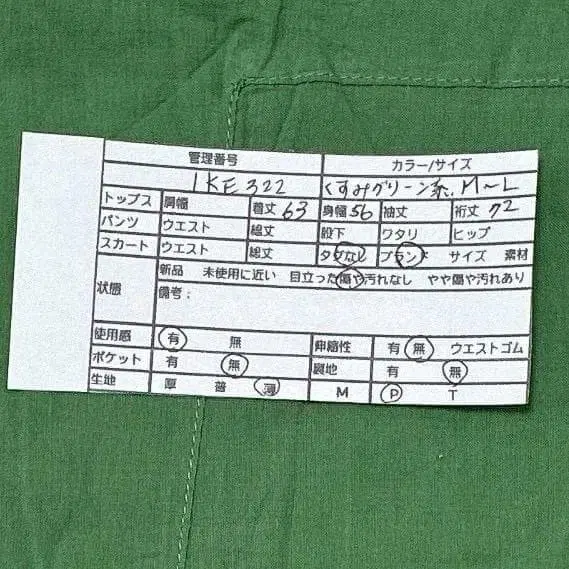 管理番号 カラー/サイズ
IKE322 くすみグリーン系. M〜L
トップス 肩幅 着丈 63 身幅 56 袖丈 裄丈 72
パンツ ウエスト 総丈 股下 ワタリ ヒップ
スカート ウエスト 総丈 タグなし ブランド サイズ 素材
状態 新品 未使用に近い 目立った傷や汚れなし やや傷や汚れあり
備考：
使用感 有 無 伸縮性 有 無 ウエストゴム
ポケット 有 無 裏地 有 無
生地 厚 普 薄 M P T